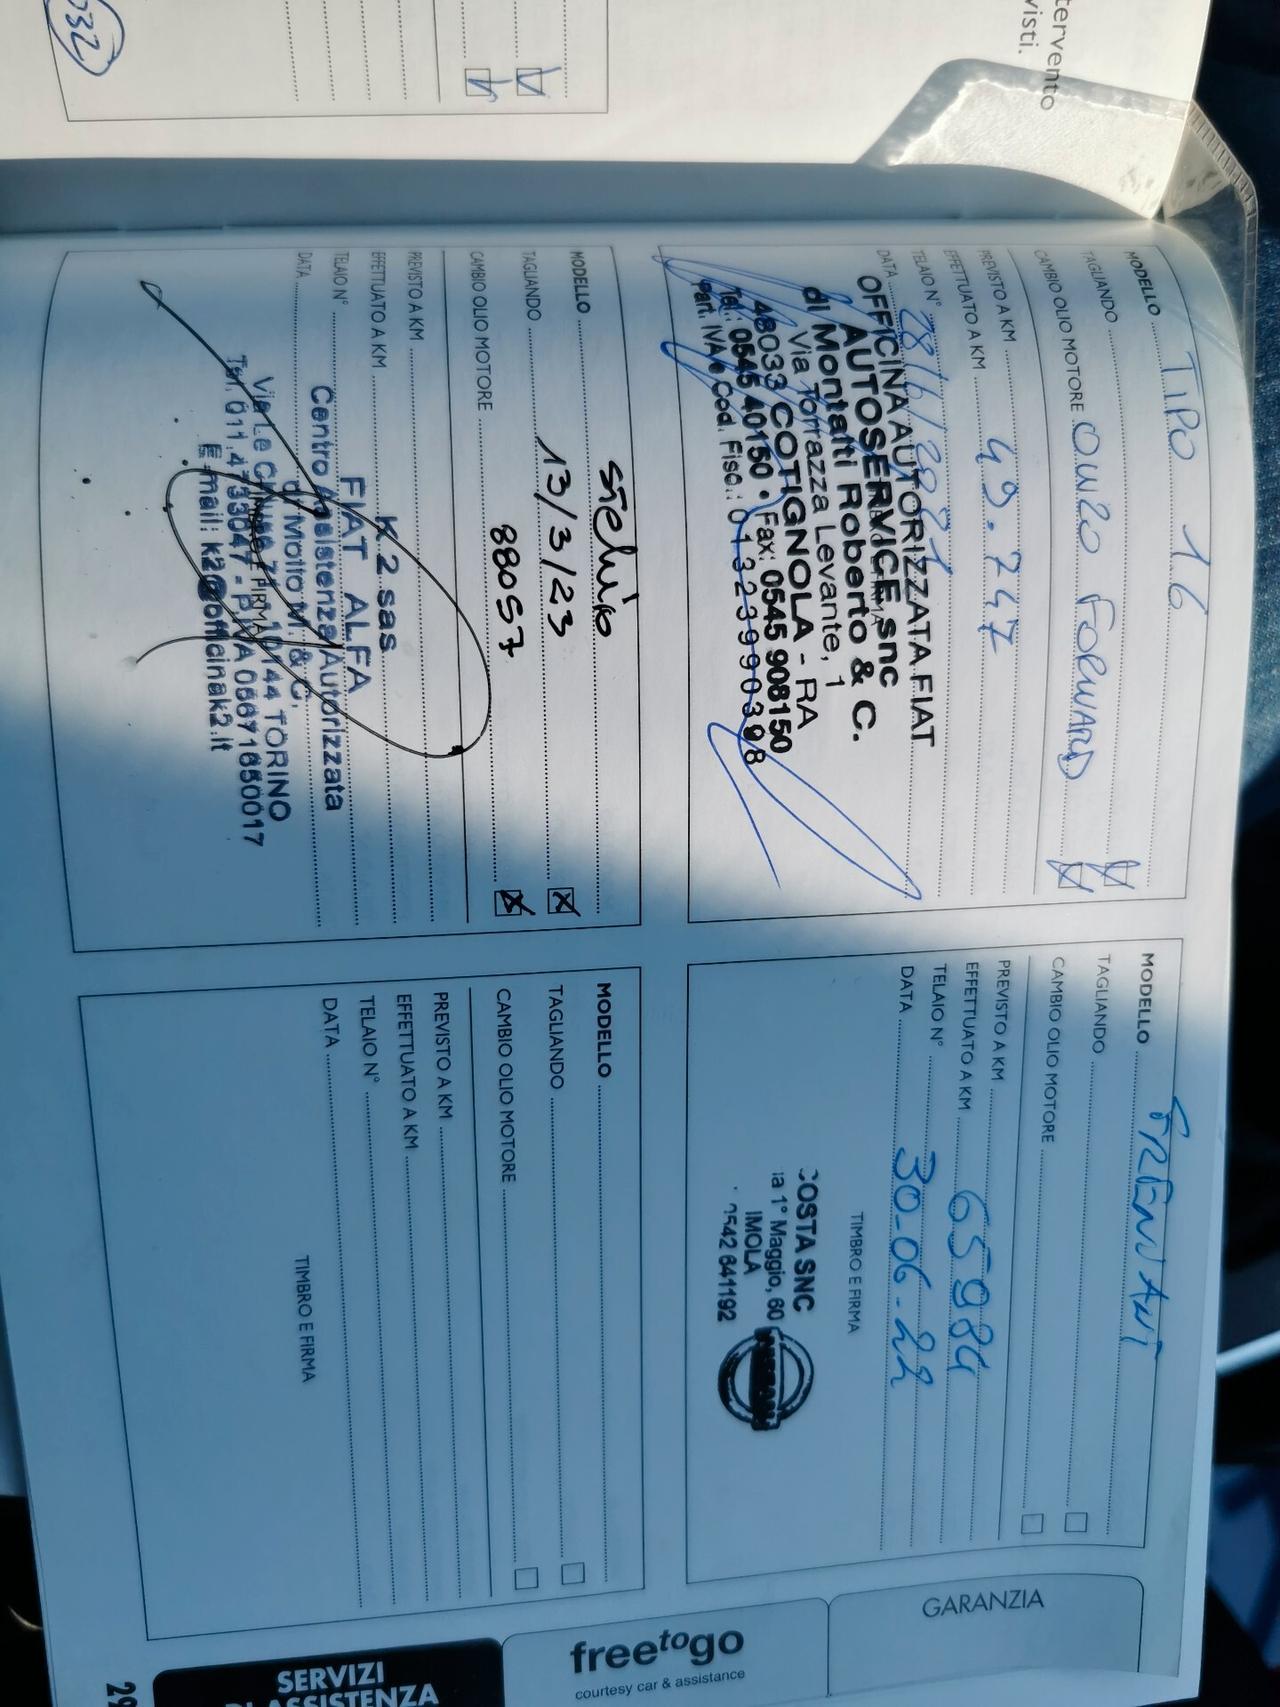 tervento
visti.
032
MODELLO TIPO 16
TAGLIANDO
CAMBIO OLIO MOTORE FORWARD
PREVISTO A KM
EFFETTUATO A KM 49.747
TELAIO N°
DATA
OFFICINA AUTORIZZATA FIAT
AUTOSERVICE snc
di Montalti Roberto & C.
Via Torrazza Levante, 1
48033 COTIGNOLA - RA
Tel.: 0545 40150 • Fax: 0545 908150
Part. IVA e Cod. Fisc.: 01323990398
MODELLO
TAGLIANDO
CAMBIO OLIO MOTORE
PREVISTO A KM
EFFETTUATO A KM 65984
TELAIO N°
DATA 30-06-22
TIMBRO E FIRMA
COSTA SNC
ia 1° Maggio, 60
IMOLA
0542 641192
MODELLO Stelvio
TAGLIANDO 13/3/23
CAMBIO OLIO MOTORE 88057
PREVISTO A KM
EFFETTUATO A KM
TELAIO N°
DATA
K 2 sas
FIAT ALFA
Centro Assistenza Autorizzata
di Motto M. & C.
10144 TORINO
Tel. 011.4733047 - P.IVA 05671650017
E-mail: k2@officinak2.it
MODELLO
TAGLIANDO
CAMBIO OLIO MOTORE
PREVISTO A KM
EFFETTUATO A KM
TELAIO N°
DATA
TIMBRO E FIRMA
GARANZIA
freetogo
courtesy car & assistance
SERVIZI
DI ASSISTENZA
29